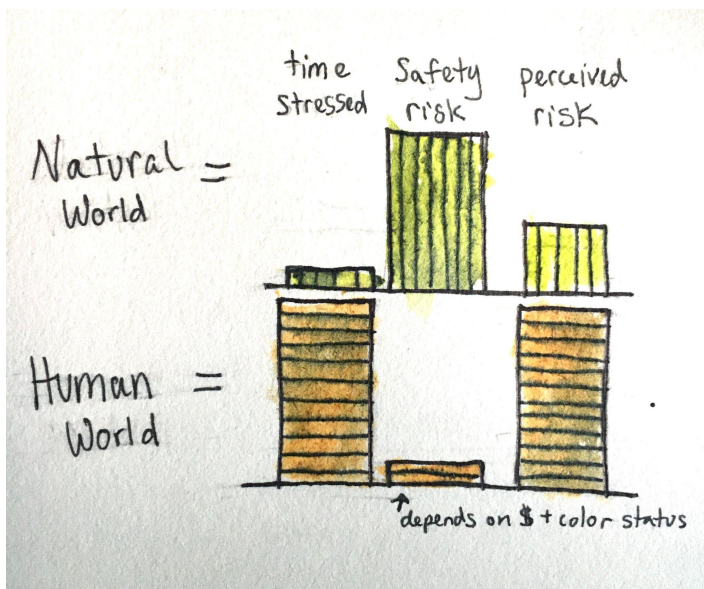 time
stressed
Safety
risk
perceived
risk
Natural =
World
Human =
World
↑depends on $ + color status